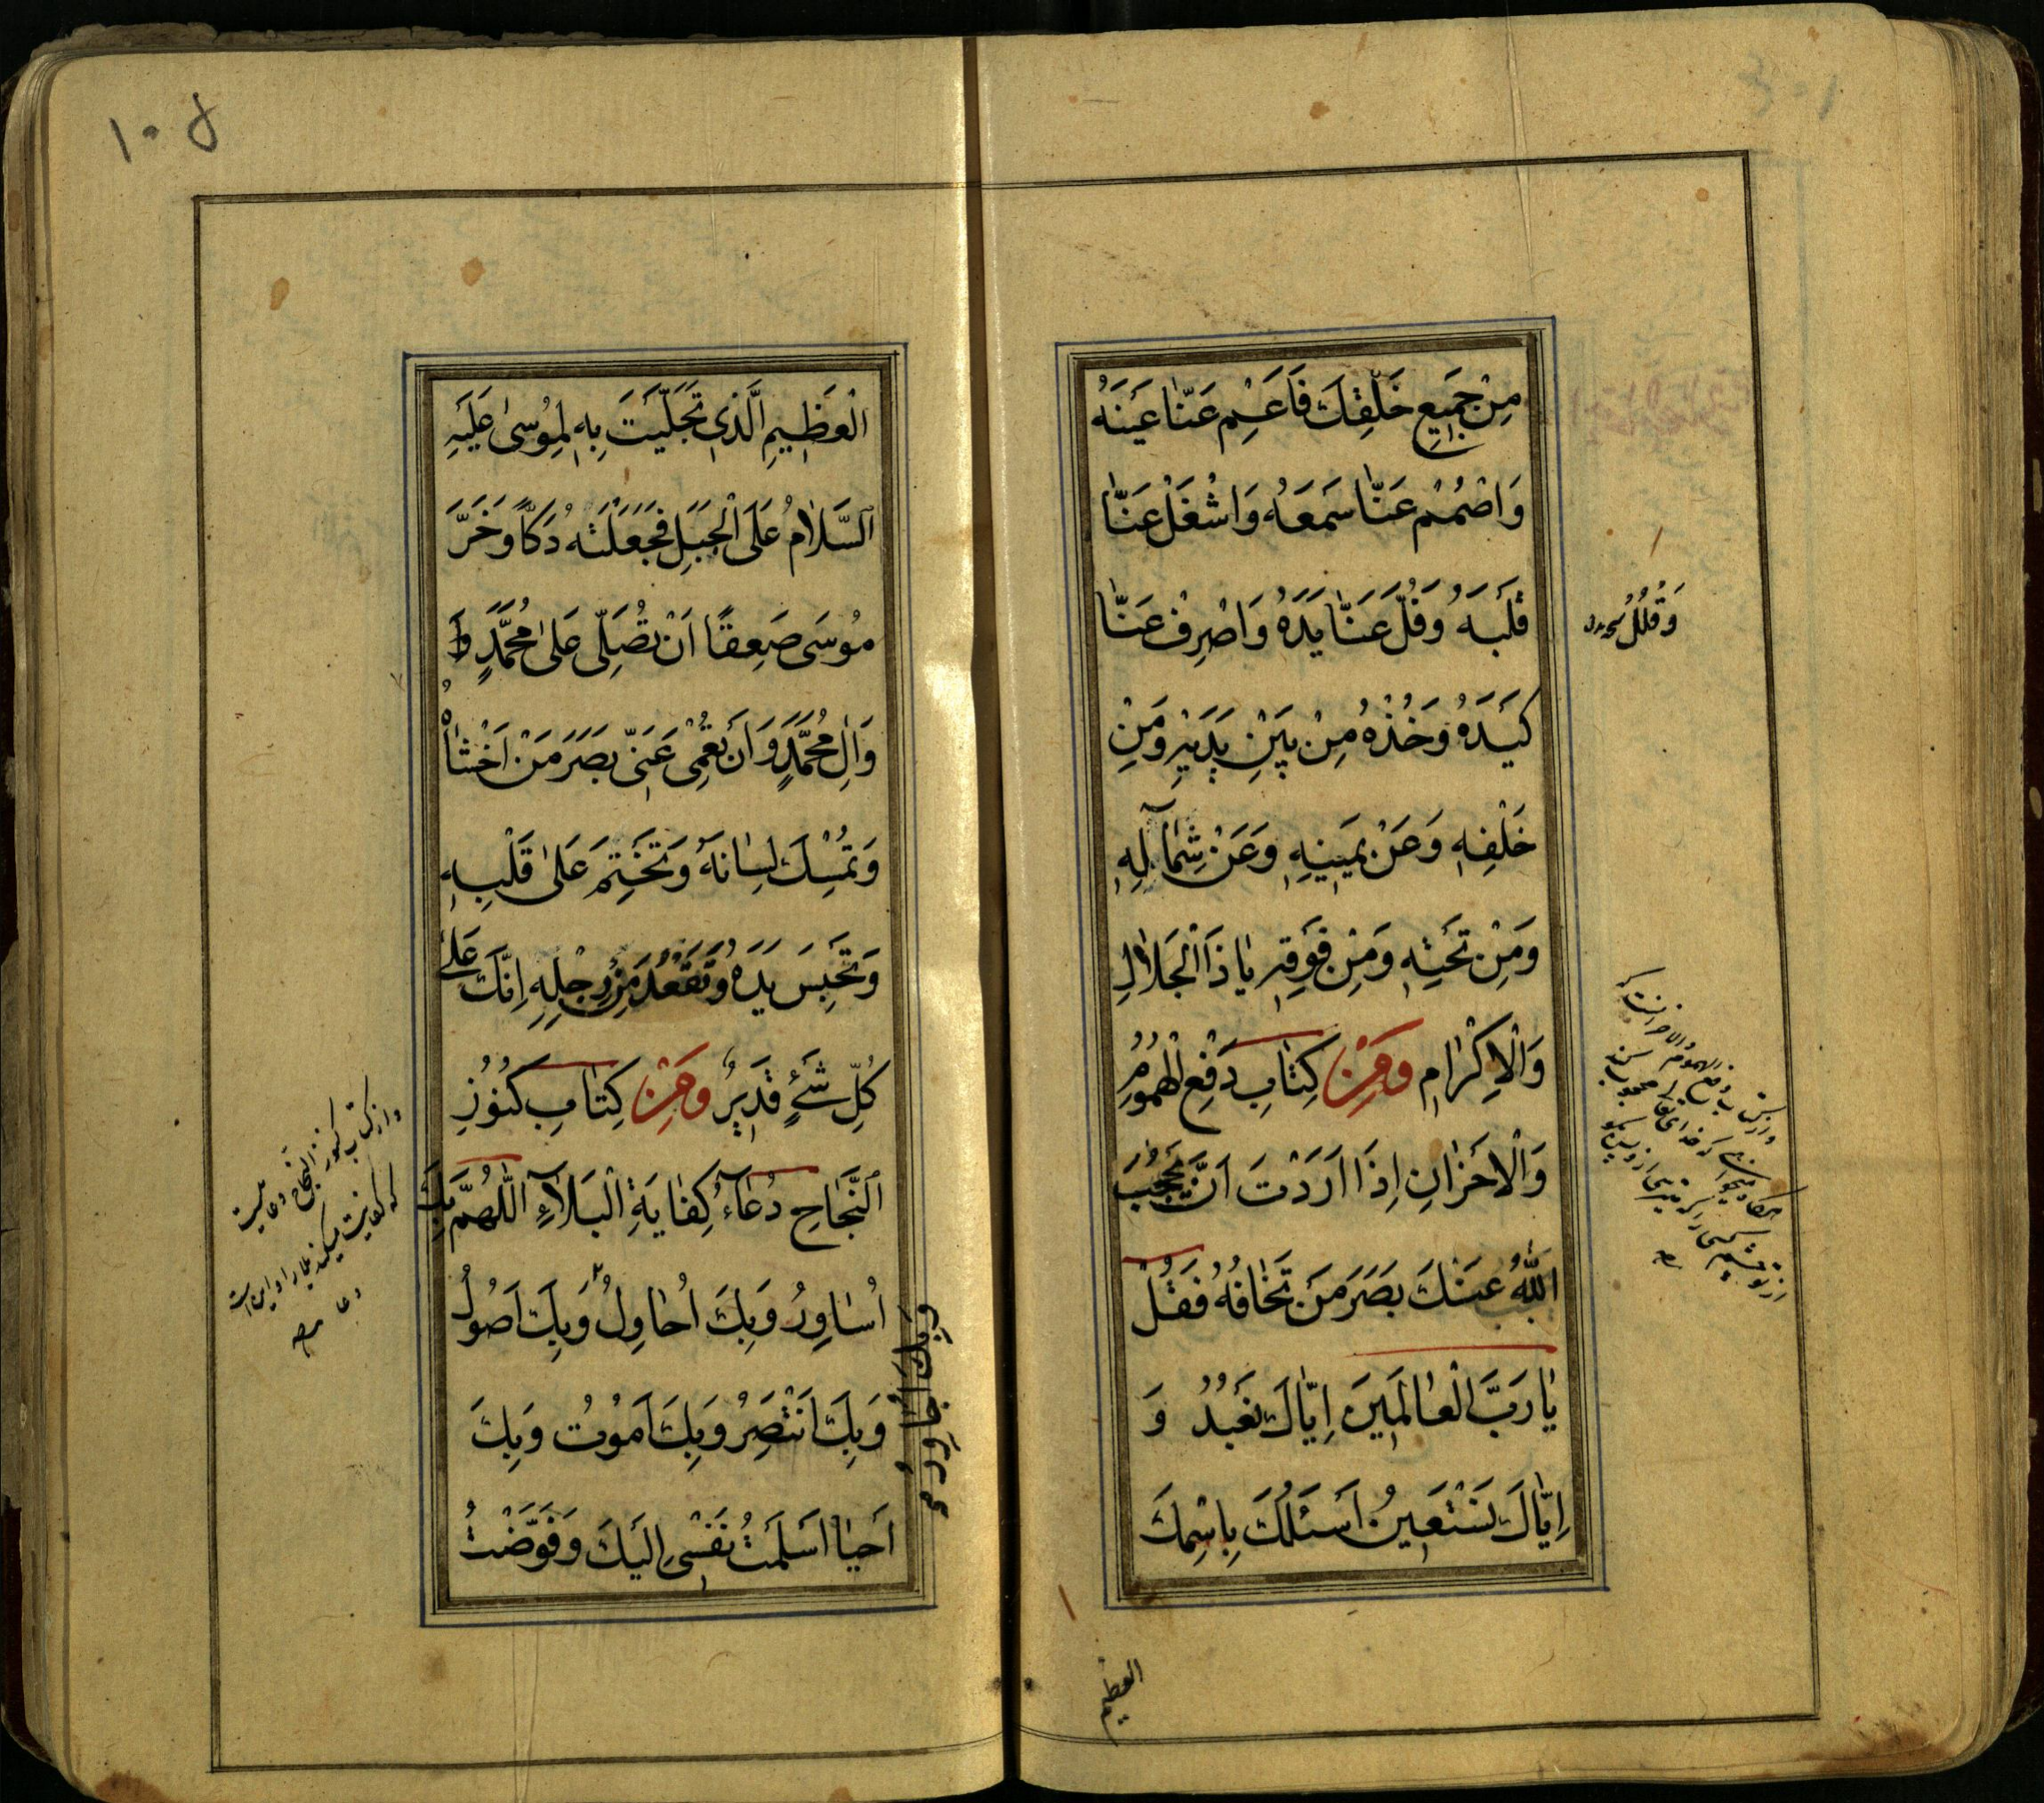 مِنْ جَمِيعِ خَلْقِكَ فَاَعْمِ عَنّٰا عَيْنَهُ
وَاصْمُمْ عَنّٰا سَمْعَهُ وَاشْغَلْ عَنّٰا
قَلْبَهُ وَفُلَّ عَنّٰا يَدَهُ وَاصْرِفْ عَنّٰا
كَيْدَهُ وَخُذْهُ مِنْ بَيْنِ يَدَيْهِ وَمِنْ
خَلْفِهِ وَعَنْ يَمِينِهِ وَعَنْ شِمٰالِهِ
وَمِنْ تَحْتِهِ وَمِنْ فَوْقِهِ يٰا ذَا الْجَلاٰلِ
وَالْاِكْرٰامِ وَمِنْ كِتٰابِ دَفْعِ الْهُمُومِ
وَالْاَحْزٰانِ اِذٰا اَرَدْتَ اَنْ يَحْجُبَ
اللّٰهُ عَنْكَ بَصَرَ مَنْ تَخٰافُهُ فَقُلْ
يٰا رَبَّ الْعٰالَمِينَ اِيّٰاكَ نَعْبُدُ وَ
اِيّٰاكَ نَسْتَعِينُ اَسْئَلُكَ بِاسْمِكَ
العظیم
وَقُلْلُ
الْعَظِيمِ الَّذِي تَجَلَّيْتَ بِهِ لِمُوسىٰ عَلَيْهِ
اَلسَّلاٰمُ عَلَى الْجَبَلِ فَجَعَلْتَهُ دَكّاً وَخَرَّ
مُوسَى صَعِقًا اَنْ تُصَلِّى عَلىٰ مُحَمَّدٍ وَ
وَاٰلِ مُحَمَّدٍ وَاَنْ تُعْمِىَ عَنِّى بَصَرَ مَنْ اَخْشٰاهُ
وَتُمْسِكَ لِسٰانَهُ وَتَخْتِمَ عَلىٰ قَلْبِهِ
وَتَحْبِسَ يَدَهُ وَتُقْعِدَ مِنْ رِجْلِهِ اِنَّكَ عَلىٰ
كُلِّ شَئٍ قَدِيرٌ وَمِنْ كِتٰابِ كُنُوزِ
اَلنَّجٰاحِ دُعٰاءُ كِفٰايَةِ الْبَلاٰءِ اَللّٰهُمَّ بِكَ
اُسٰاوِرُ وَبِكَ اُحٰاوِلُ وَبِكَ اَصُولُ
وَبِكَ اَنْتَصِرُ وَبِكَ اَمُوتُ وَبِكَ
اَحْيٰا اَسْلَمْتُ نَفْسِى اِلَيْكَ وَفَوَّضْتُ
وَبِكَ اُجٰاوِرُ
واز کتاب کنوز النجاح دعائیست
که کفایت میکند بلا را و این است